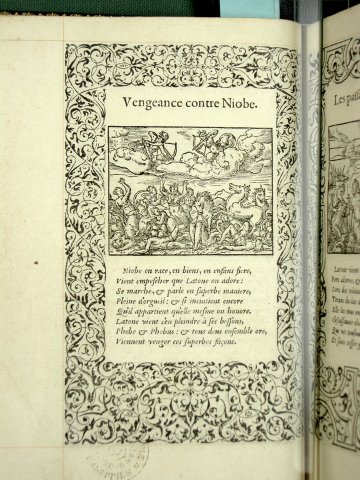 Vengeance contre Niobe.
Niobe en race, en biens, en enfans fiere,
Vient empescher que Latone on adore:
Se marche, & parle en superbe maniere,
Pleine d'orgueil: & si meintient encore
Qu'il appartient qu'elle mesme on honore.
Latone vient s'en pleindre à ses bessons,
Phebe & Phebus: & tous deus ensemble ore,
Viennent venger ces superbes façons.
Les païs
Latone vient